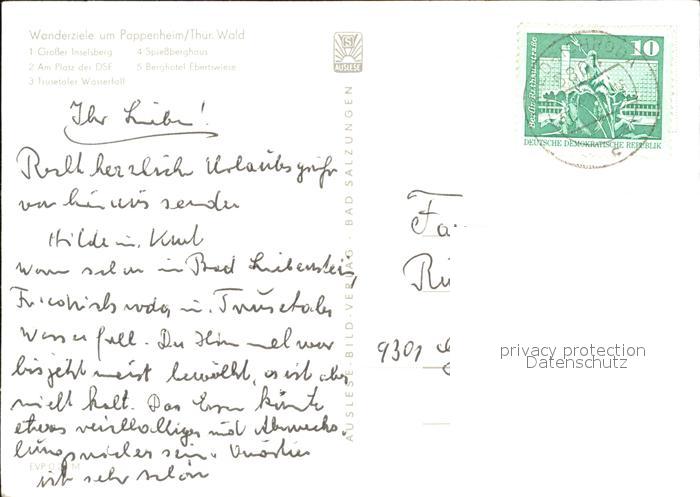 Wanderziele um Pappenheim/Thür. Wald
1 Großer Inselsberg 4 Spießberghaus
2 Am Platz der DSF 5 Berghotel Ebertswiese
3 Trusetaler Wasserfall
AUSLESE
AUSLESE-BILD-VERLAG · BAD SALZUNGEN
Berlin-Rathausstraße
10
DEUTSCHE DEMOKRATISCHE REPUBLIK
Ihr Lieben!
Recht herzliche Urlaubsgrüße
von hier aus senden
Hilde u. Kurt
Waren schon in Bad Liebenstein,
Friedrichroda u. Trusetaler
Wasserfall. Der Himmel war
bis jetzt meist bewölkt, es ist aber
nicht kalt. Das Essen könnte
etwas reichhaltiger und Abwechs-
lungsreicher sein. Quartier
ist sehr schön
Fa
9301
privacy protection
Datenschutz